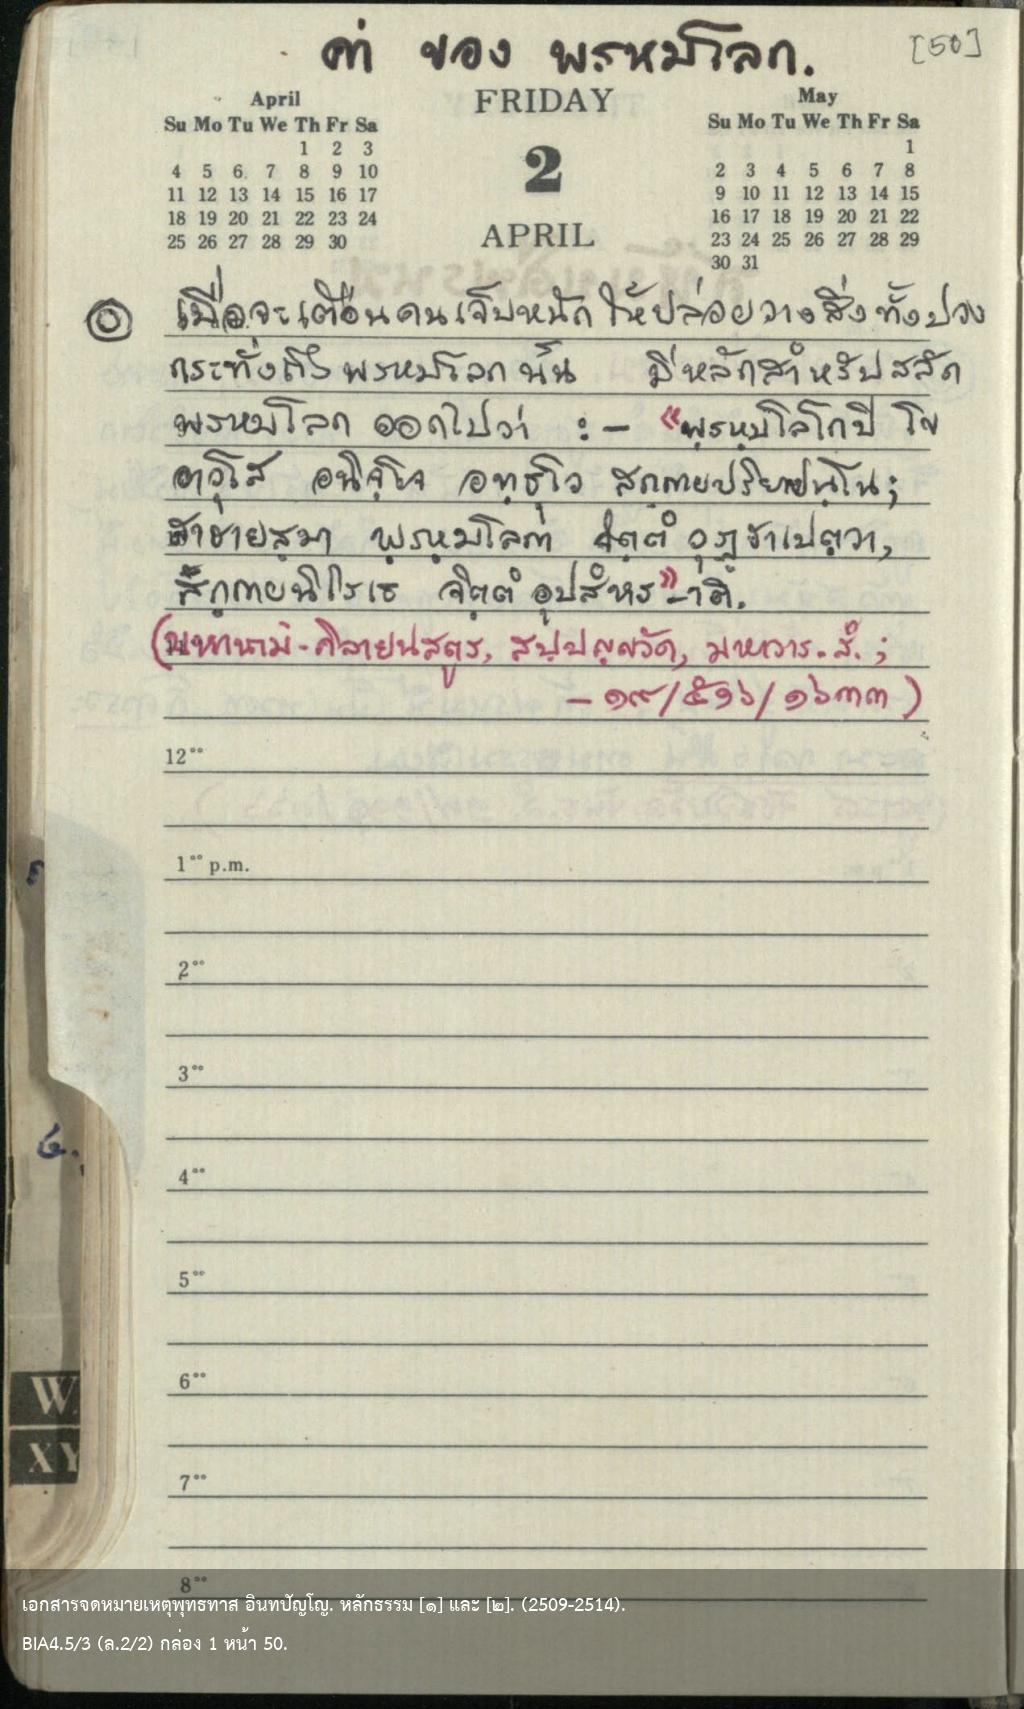 ค่า ของ พรหมโลก.
[50]
April
Su Mo Tu We Th Fr Sa
1 2 3
4 5 6 7 8 9 10
11 12 13 14 15 16 17
18 19 20 21 22 23 24
25 26 27 28 29 30
FRIDAY
2
APRIL
May
Su Mo Tu We Th Fr Sa
1
2 3 4 5 6 7 8
9 10 11 12 13 14 15
16 17 18 19 20 21 22
23 24 25 26 27 28 29
30 31
เมื่อจะเตือนคนเจ็บหนัก ให้ปล่อยวางสิ่งทั้งปวง
กระทั่งถึงพรหมโลกนั้น มีหลักสำหรับสลัด
พรหมโลก ออกไปว่า :– "พฺรหฺมโลโกปิ โข
อาวุโส อนิจฺโจ อทฺธุโว สกฺกายปริยาปนฺโน;
สาธายสฺมา พฺรหฺมโลกา จิตฺตํ วุฏฺฐาเปตฺวา,
สกฺกายนิโรเธ จิตฺตํ อุปสํหร"–าติ.
(มหานาม-คิลายนสูตร, สปฺปญฺญวัค, มหาวาร. สํ. ;
– ๑๙/๕๑๖/๑๖๓๓)
12°°
1°° p.m.
2°°
3°°
4°°
5°°
6°°
7°°
8°°
W
XY
เอกสารจดหมายเหตุพุทธทาส อินทปัญโญ. หลักธรรม [๑] และ [๒]. (2509-2514).
BIA4.5/3 (ล.2/2) กล่อง 1 หน้า 50.